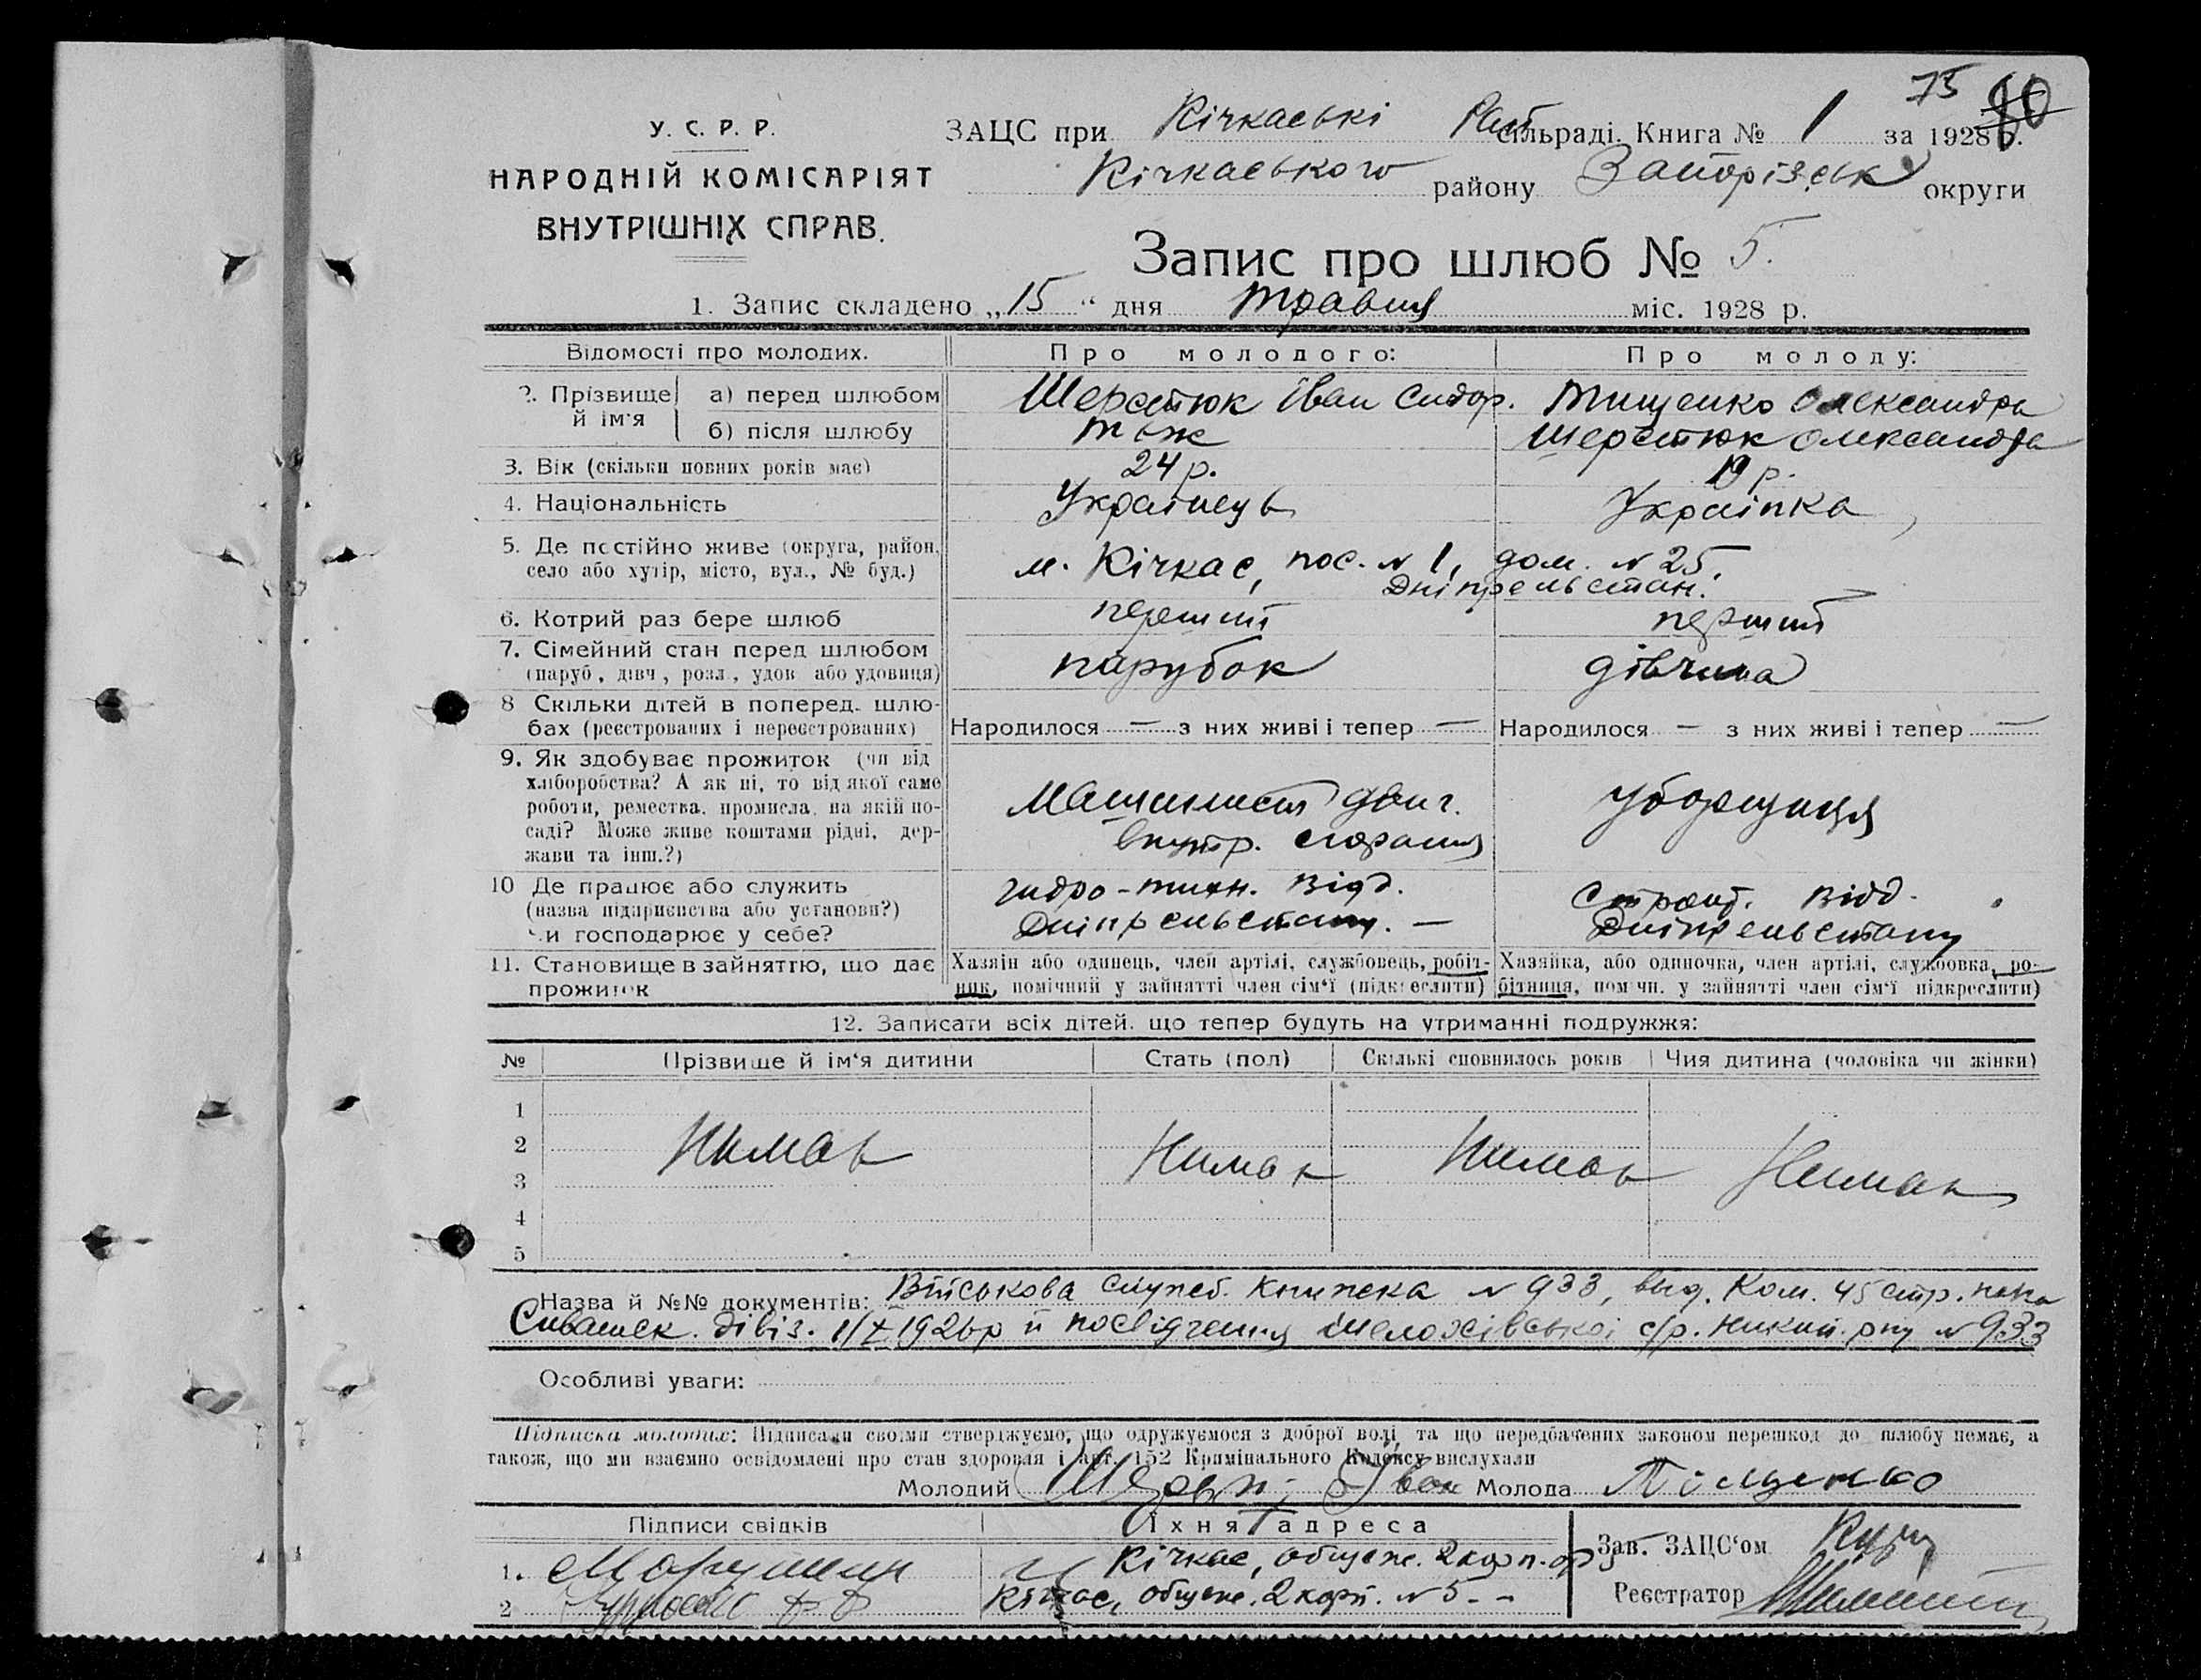 75 80
У. С. Р. Р.
НАРОДНІЙ КОМІСАРІЯТ
ВНУТРІШНІХ СПРАВ.
ЗАЦС при Кічкаські сільраді. Книга № 1 за 1928 р.
Кічкаського району Запорізськ округи
Запис про шлюб № 5.
1. Запис складено „15“ дня травня міс. 1928 р.
Відомості про молодих. Про молодого: Про молоду:
2. Прізвище й ім'я а) перед шлюбом Шерстюк Іван Сидор. Тищенко Олександра
б) після шлюбу теж Шерстюк Олександра
3. Вік (скільки повних років має) 24 р. 19 р.
4. Національність Українець Українка
5. Де постійно живе (округа, район, село або хутір, місто, вул., № буд.) м. Кічкас, пос. № 1, дом. № 25. Дніпрельстан.
6. Котрий раз бере шлюб перший перший
7. Сімейний стан перед шлюбом (паруб, дівч, розл, удов або удовиця) парубок дівчина
8 Скільки дітей в поперед. шлюбах (реєстрованих і нереєстрованих) Народилося — з них живі і тепер — Народилося — з них живі і тепер —
9. Як здобуває прожиток (чи від хліборобства? А як ні, то від якої саме роботи, ремества, промисла, на якій посаді? Може живе коштами рідні, держави та інш.?) Машинист двиг. внутр. сгорания уборщиця
10 Де працює або служить (назва підприємства або установи?) Чи господарює у себе? гидро-техн. Відд. Дніпрельстану. — Строит. Відд. Дніпрельстану
11. Становище в зайняттю, що дає прожиток Хазяїн або одинець, член артілі, службовець, робітник, помічний у зайнятті член сім'ї (підкреслити) Хазяйка, або одиночка, член артілі, службовка, робітниця, помічн. у зайнятті член сім'ї підкреслити)
12. Записати всіх дітей, що тепер будуть на утриманні подружжя:
№ Прізвище й ім'я дитини Стать (пол) Скількі сповнилось років Чия дитина (чоловіка чи жінки)
1
2 Нимає Нимає Нимає Нимає
3
4
5
Назва й №№ документів: Військова служеб. книжека № 933, выд. Ком. 45 стр. полка
Сивашск. дівіз. 1/X 1926р й посвідчення с/р. № 933
Особливі уваги:
Підписка молодих: Підписами своїми стверджуємо, що одружуємося з доброї волі, та що передбачених законом перешкод до шлюбу немає, а
також, що ми взаємно освідомлені про стан здоровля і арт. 152 Кримінального Кодексу вислухали
Молодий Іван Молода Тіщенко
Підписи свідків Їхня адреса Зав. ЗАЦС'ом
1. Кічкас, общеж. 2 корп.
2 Кічкас, общеж. 2 корп. № 5. - Реєстратор